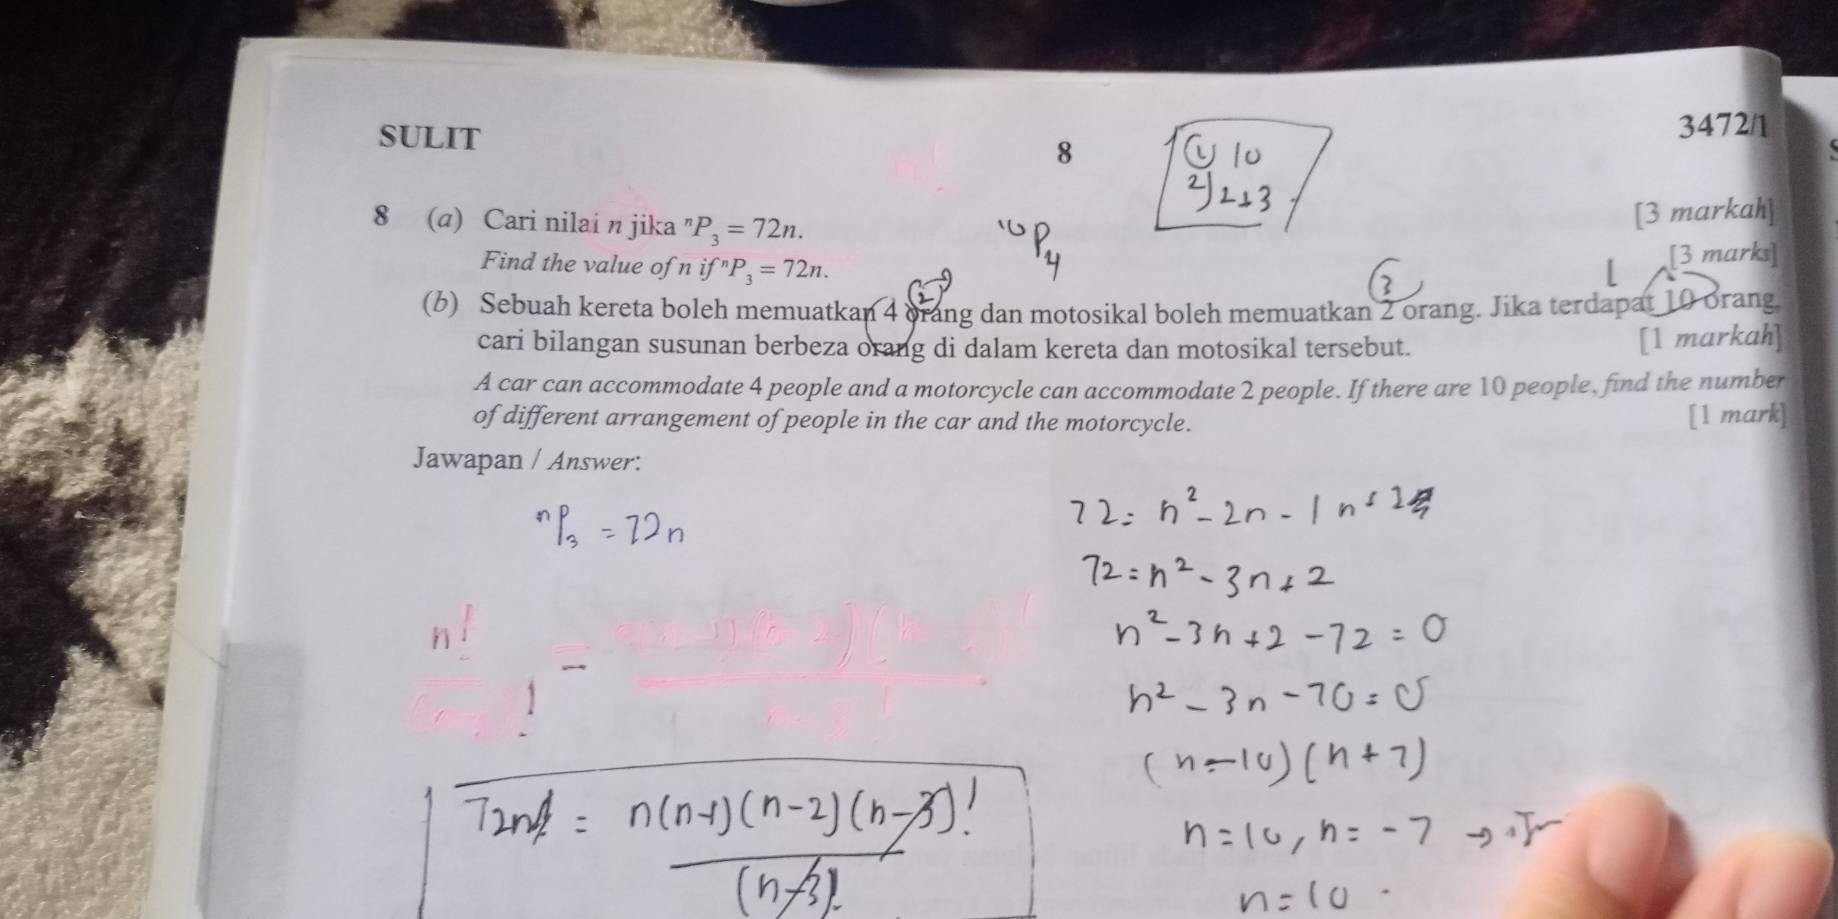 SULIT
8
3472/1
① 10
2) 2+3
8 (a) Cari nilai n jika ⁿP₃ = 72n.
[3 markah]
Find the value of n if ⁿP₃ = 72n.
[3 marks]
¹⁰P₄
(b) Sebuah kereta boleh memuatkan 4 orang dan motosikal boleh memuatkan 2 orang. Jika terdapat 10 orang,
cari bilangan susunan berbeza orang di dalam kereta dan motosikal tersebut.
[1 markah]
A car can accommodate 4 people and a motorcycle can accommodate 2 people. If there are 10 people, find the number
of different arrangement of people in the car and the motorcycle.
[1 mark]
Jawapan / Answer:
ⁿP₃ = 72n
n!
72n = n(n-1)(n-2)(n-3)!
(n-3)!
72 = n² - 2n - 1n + 2
72 = n² - 3n + 2
n² - 3n + 2 - 72 = 0
n² - 3n - 70 = 0
(n - 10)(n + 7)
n = 10, n = -7 →
n = 10